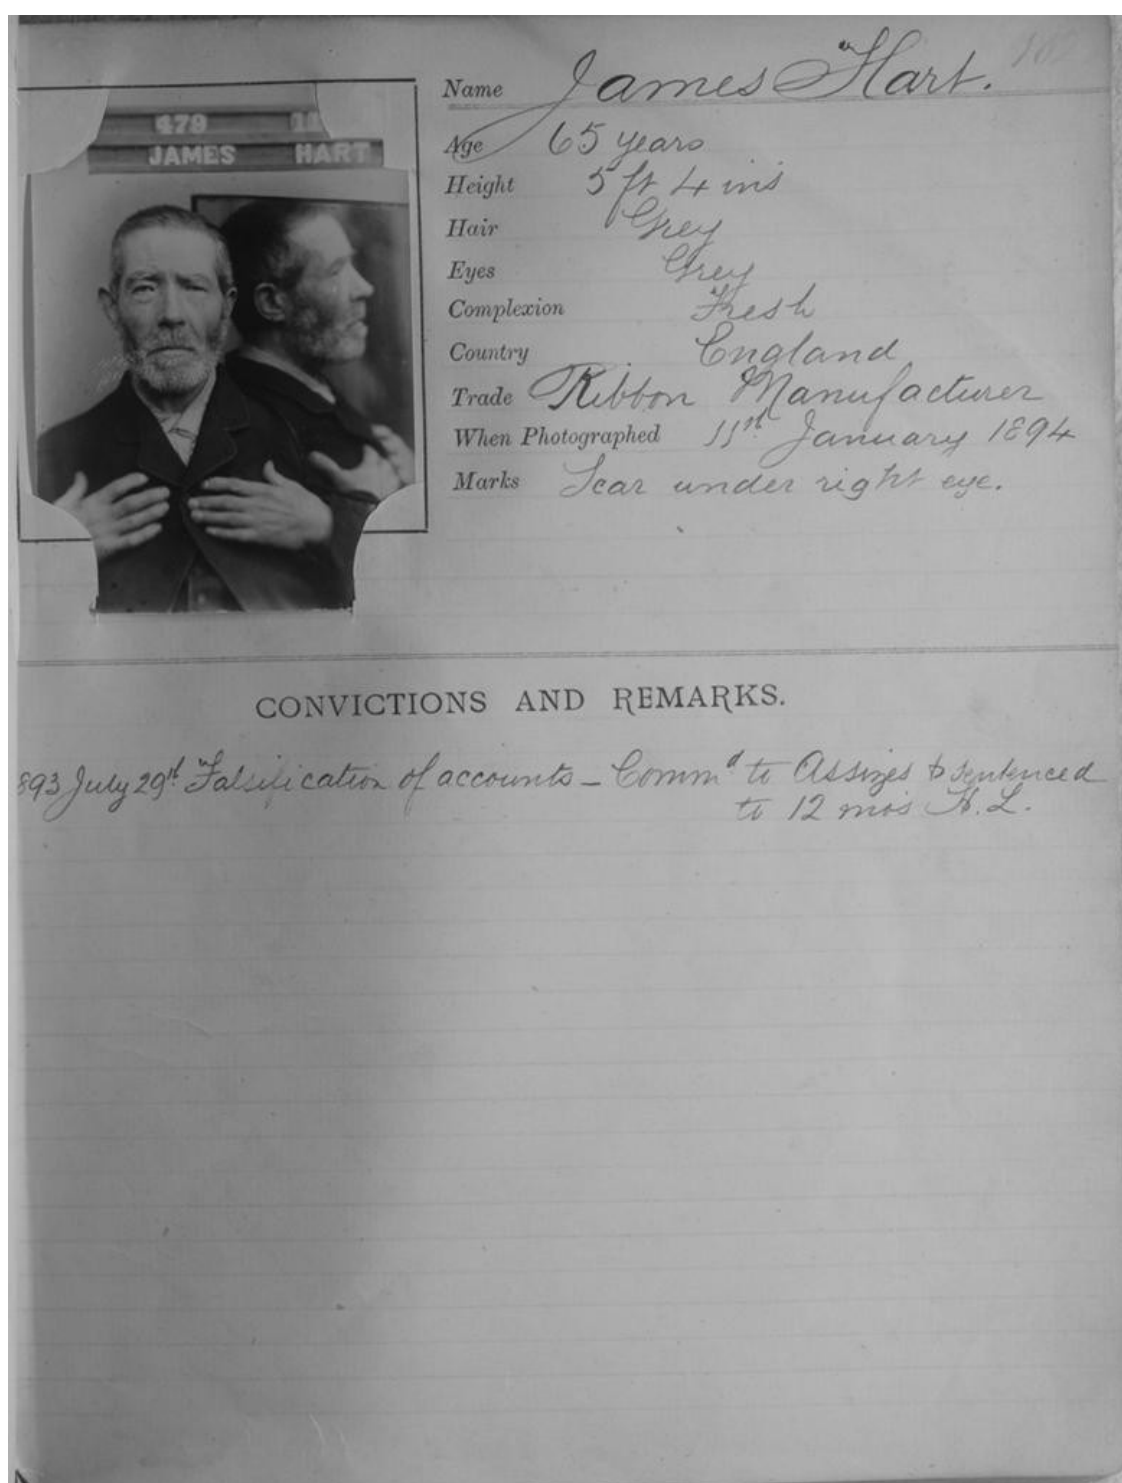 479
JAMES HART
Name James Hart.
Age 65 years
Height 5 ft 4 ins
Hair Grey
Eyes Grey
Complexion Fresh
Country England
Trade Ribbon Manufacturer
When Photographed 11th January 1894
Marks Scar under right eye.
CONVICTIONS AND REMARKS.
893 July 29th Falsification of accounts – Commd to Assizes & sentenced
to 12 mos H.L.